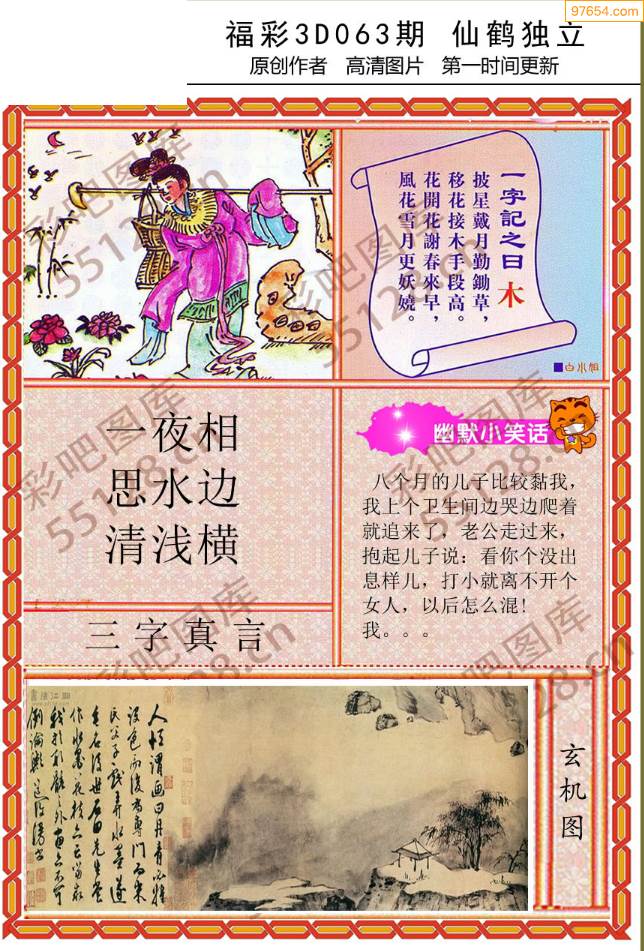 97654.com
福彩3D063期 仙鹤独立
原创作者 高清图片 第一时间更新
一字記之曰 木
披星戴月勤鋤草，
移花接木手段高。
花開花謝春來早，
風花雪月更妖嬈。
白小姐
一夜相
思水边
清浅横
三字真言
幽默小笑话
八个月的儿子比较黏我，
我上个卫生间边哭边爬着
就追来了，老公走过来，
抱起儿子说：看你个没出
息样儿，打小就离不开个
女人，以后怎么混！
我。。。
玄机图
彩吧图库
55128.cn